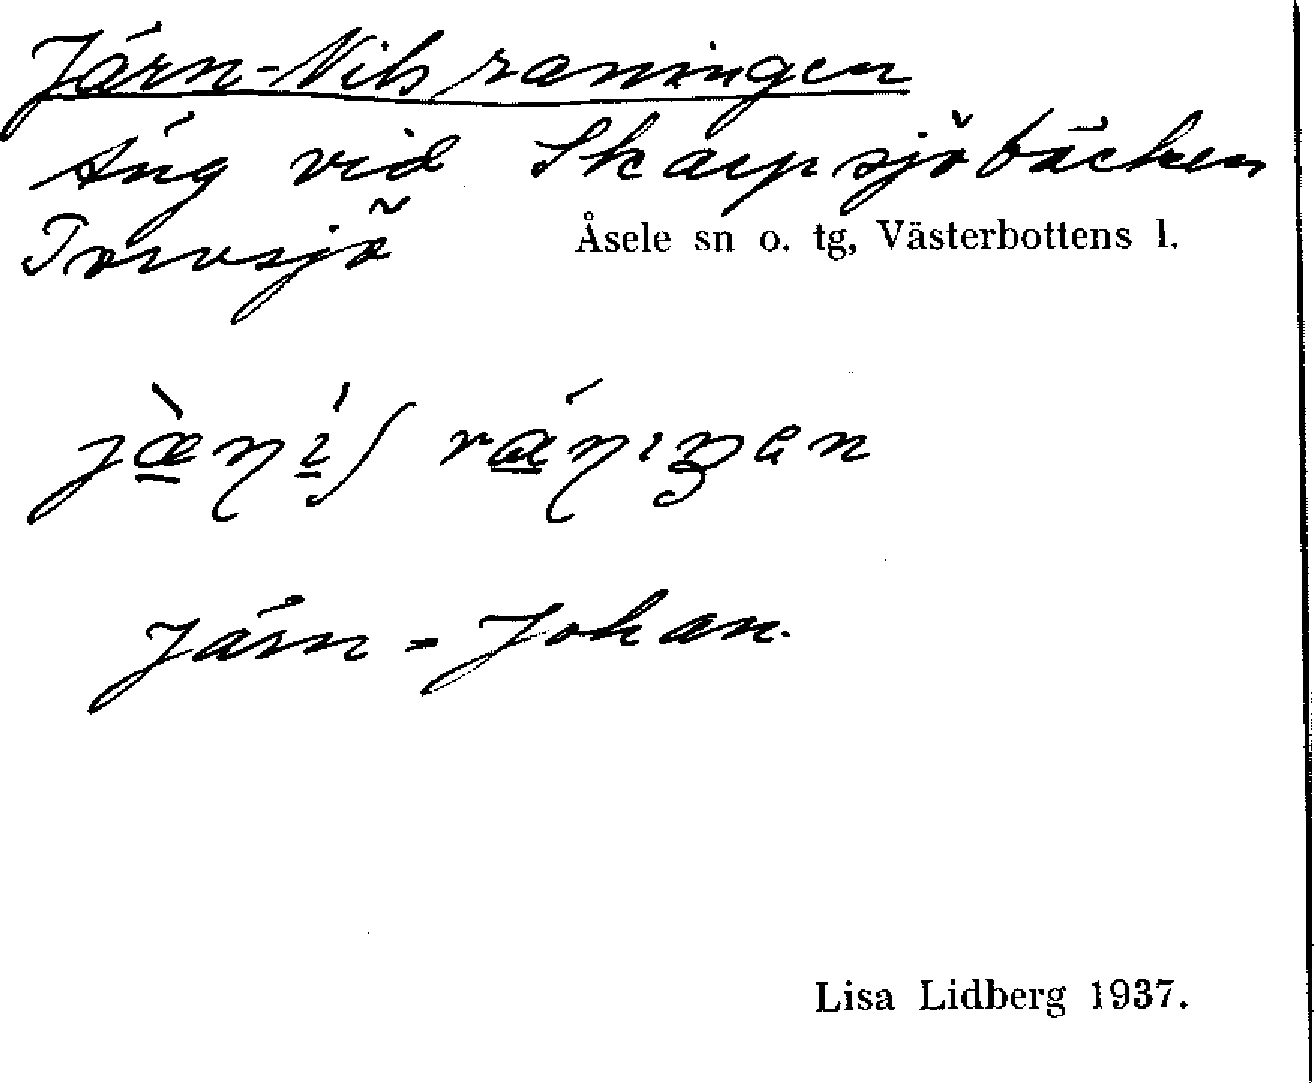 Järn-Nilsraningen
Äng vid Skarpsjöbäcken
Torvsjö
Åsele sn o. tg, Västerbottens l.
Järn-Johan.
Lisa Lidberg 1937.